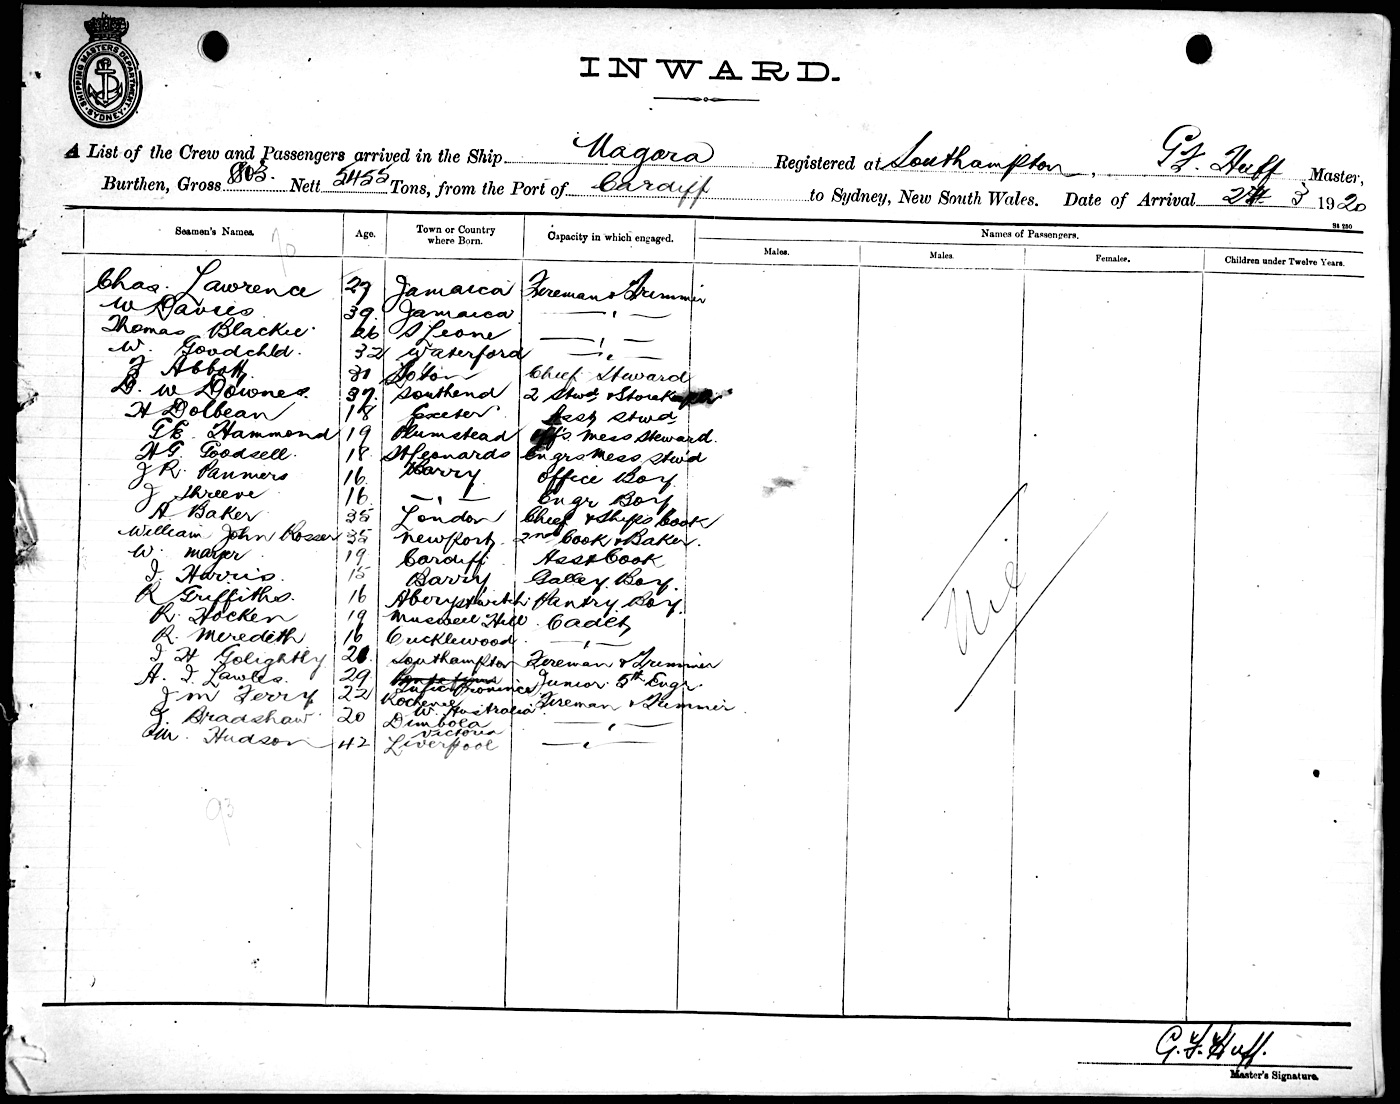 SHIPPING MASTERS DEPARTMENT
SYDNEY
INWARD.
A List of the Crew and Passengers arrived in the Ship Nagara Registered at Southampton, G F. Huff Master,
Burthen, Gross 803. Nett 5455 Tons, from the Port of Cardiff to Sydney, New South Wales. Date of Arrival 3 1920
Seamen's Names. Age. Town or Country where Born. Capacity in which engaged. Names of Passengers.
Males. Males. Females. Children under Twelve Years.
70
Chas. Lawrence 29 Jamaica Fireman & Trimmer
W Davies 39 Jamaica — " —
Thomas Blackie 26 S Leone — " —
W. Goodchld. 32 Waterford — " —
F Abbott 31 So'ton Chief Steward
D. W Downes 37 Southend 2 Stwd & Storekeeper
H Dolbean 18 Exeter Asst Stwd
GE. Hammond 19 Plumstead Off's Mess Steward.
H G. Goodsell 18 St Leonards Engrs Mess Stw'd
J R. Panmers 16 Barry Office Boy
J Shreeve 16 — " — Engr Boy
A Baker 35 London Chief & Ships Cook
William John Rosser 35 Newport 2nd Cook & Baker.
W. Mayer 19 Cardiff Asst Cook
I. Harris. 15 Barry Galley Boy.
R Griffiths. 16 Aberystwith Pantry Boy.
R. Hocken 19 Muswell Hill Cadet
R. Meredith 16 Cricklewood — " —
I H Golightly 21 Southampton Fireman & Trimmer
A. I. Lawles. 29 Province Junior 5th Engr
J M Ferry 22 W. Australia Fireman & Trimmer
J. Bradshaw 20 Dimboola Victoria — " —
Hudson 42 Liverpool — " —
Nil
93
G. F. Huff.
Master's Signature.